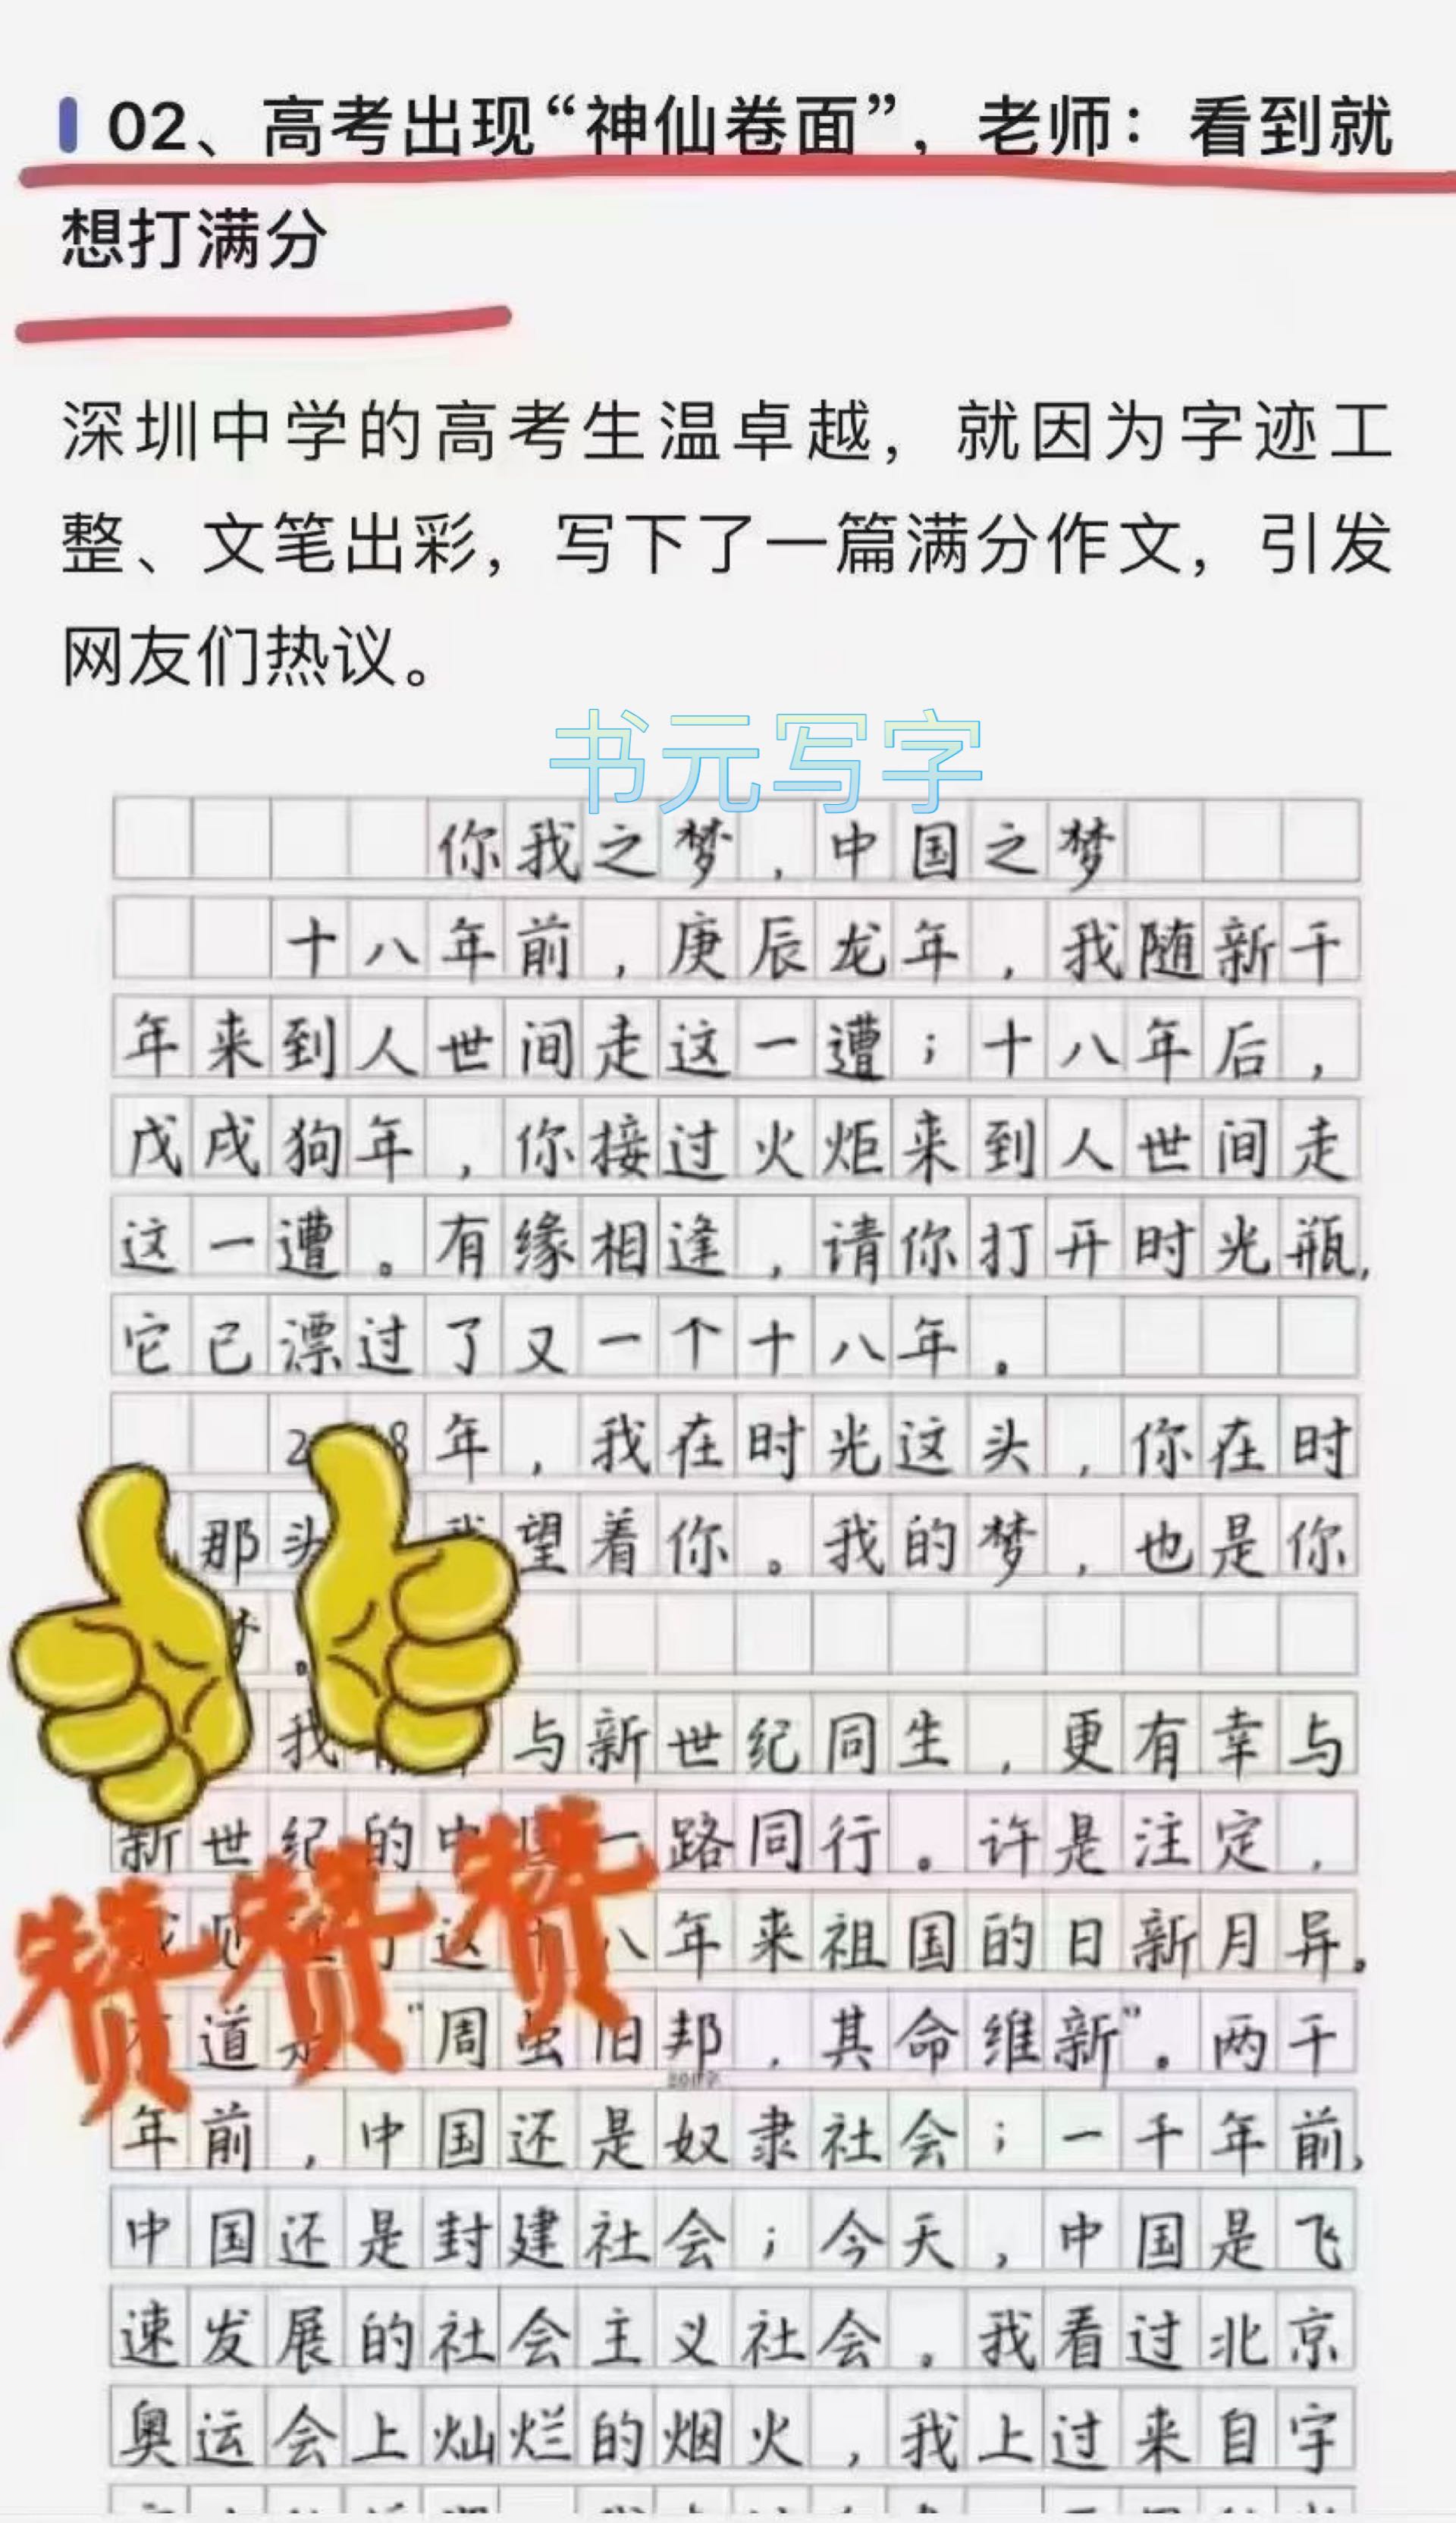 02、高考出现“神仙卷面”，老师：看到就
想打满分
深圳中学的高考生温卓越，就因为字迹工
整、文笔出彩，写下了一篇满分作文，引发
网友们热议。
书元写字
你我之梦，中国之梦
十八年前，庚辰龙年，我随新千
年来到人世间走这一遭；十八年后，
戊戌狗年，你接过火炬来到人世间走
这一遭。有缘相逢，请你打开时光瓶，
它已漂过了又一个十八年。
28年，我在时光这头，你在时
那头我望着你。我的梦，也是你
梦。
我与新世纪同生，更有幸与
新世纪的中国一路同行。许是注定，
这十八年来祖国的日新月异。
赞赞赞
道“周虽旧邦，其命维新”。两千
年前，中国还是奴隶社会；一千年前，
中国还是封建社会；今天，中国是飞
速发展的社会主义社会。我看过北京
奥运会上灿烂的烟火，我上过来自宇